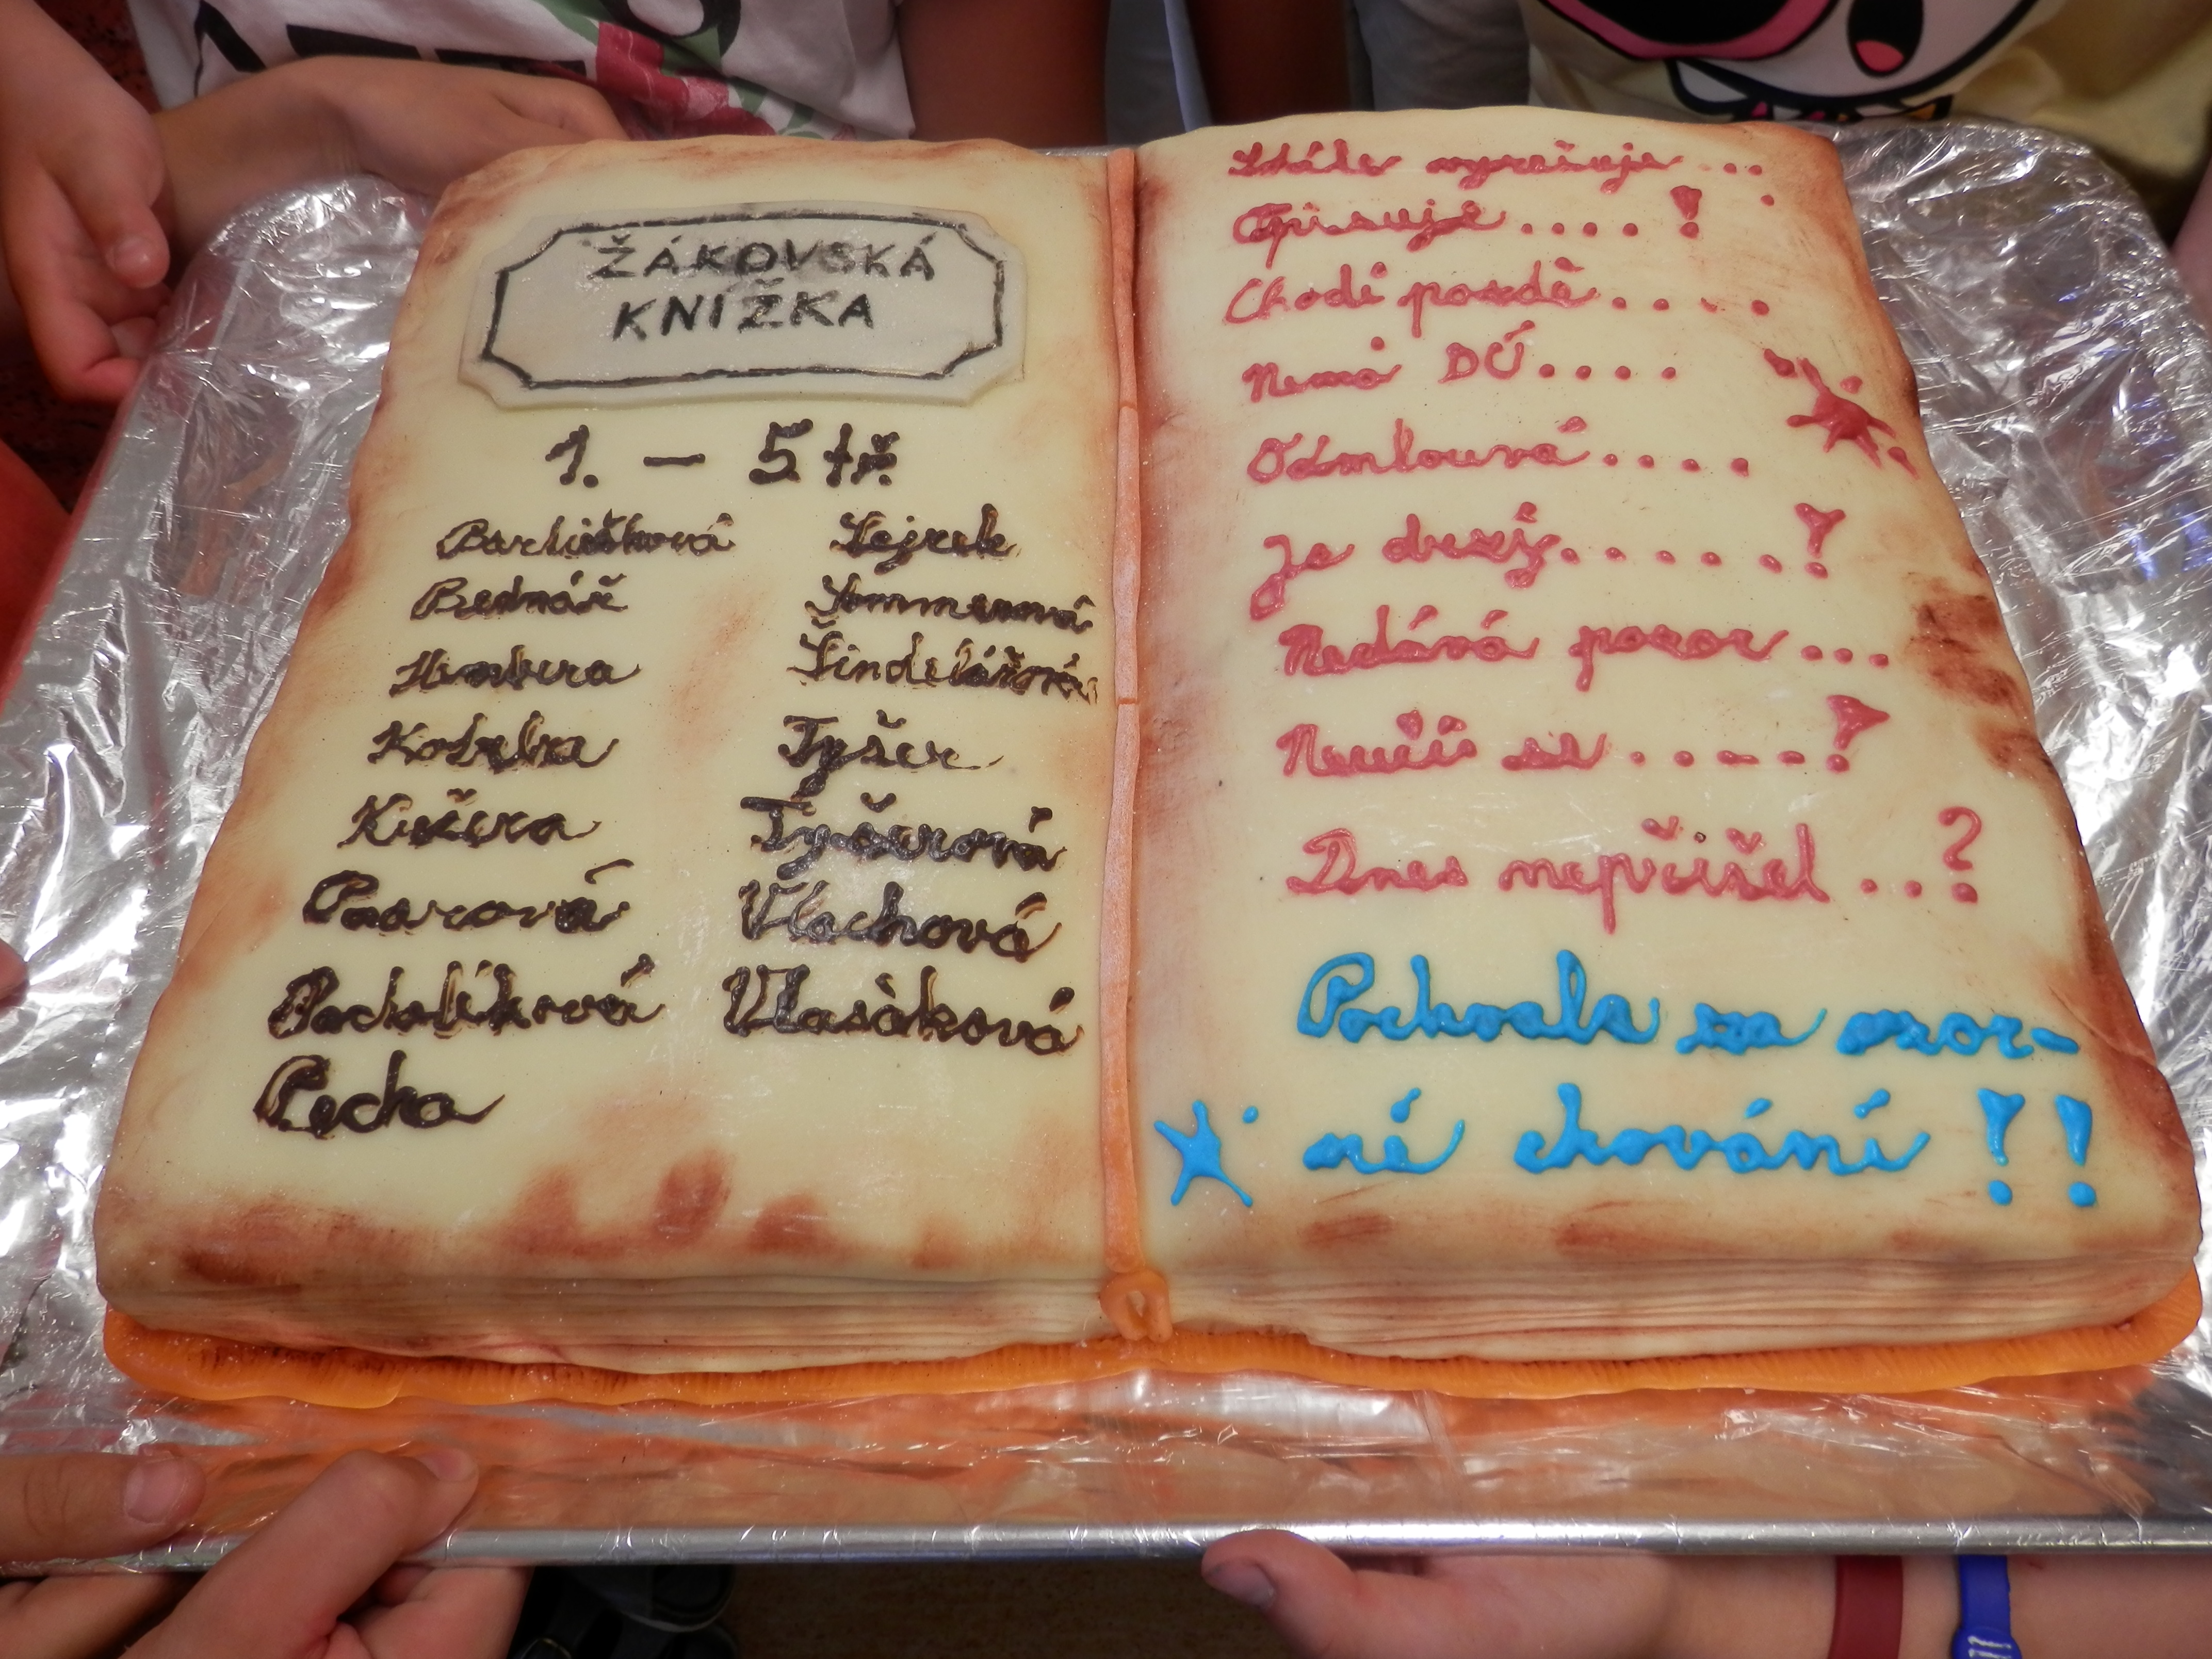 ŽÁKOVSKÁ
KNÍŽKA
1. - 5 tř.
Barlišková
Bednář
Hambera
Kotrba
Kučera
Paarová
Pachlíková
Pecha
Sejrek
Sommerová
Šindelářová
Tyšer
Tyšerová
Vlachová
Vlasáková
Stále vyrušuje ....
Opisuje .... !
Chodí pozdě .....
Nemá DÚ ....
Odmlouvá ....
Je drzý ..... !
Nedává pozor ...
Neučí se ..... !
Dnes nepřišel ..?
Pochvala za vzor-
né chování !!